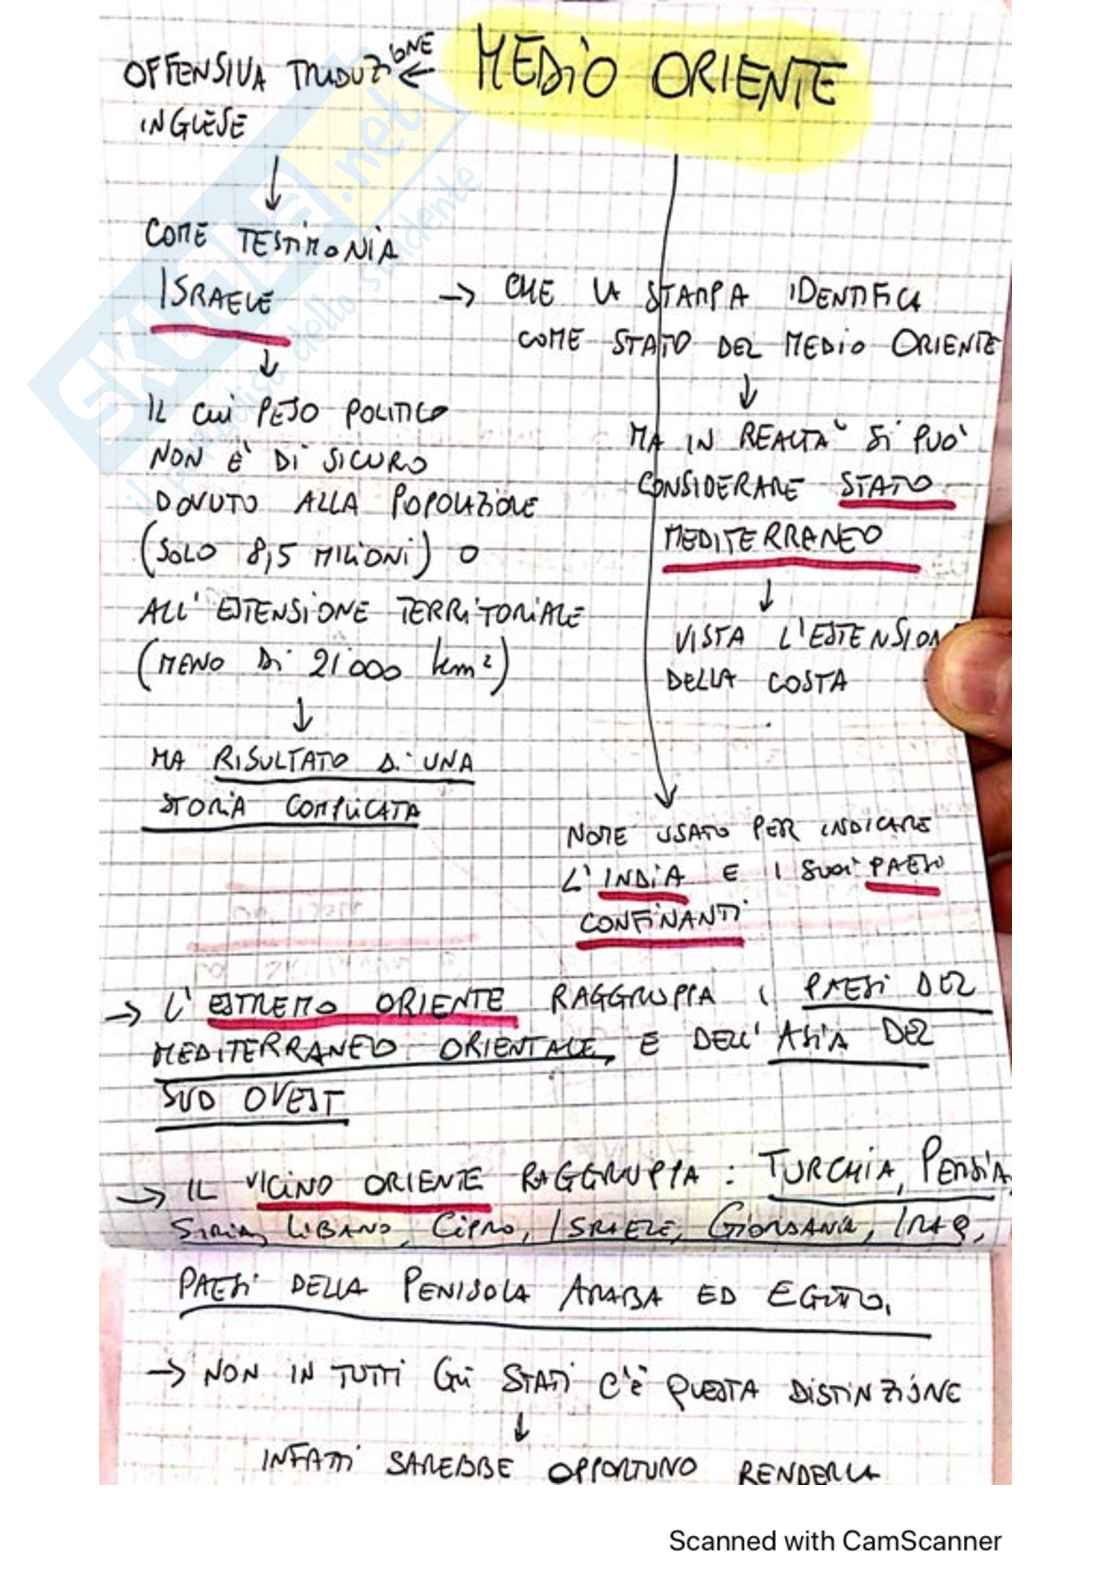 MEDIO ORIENTE
OFFENSIVA TRADUZIONE
INGLESE
COME TESTIMONIA
ISRAELE
→ CHE LA STAMPA IDENTIFICA
COME STATO DEL MEDIO ORIENTE
MA IN REALTA' SI PUO'
CONSIDERARE STATO
MEDITERRANEO
VISTA L'ESTENSION
DELLA COSTA
IL CUI PESO POLITICO
NON E' DI SICURO
DOVUTO ALLA POPOLAZIONE
(SOLO 8,5 MILIONI) O
ALL'ESTENSIONE TERRITORIALE
(MENO DI 21'000 km²)
MA RISULTATO DI UNA
STORIA COMPLICATA
NOME USATO PER INDICARE
L'INDIA E I SUOI PAESI
CONFINANTI
→ L'ESTREMO ORIENTE RAGGRUPPA I PAESI DEL
MEDITERRANEO ORIENTALE, E DELL'ASIA DEL
SUD OVEST
→ IL VICINO ORIENTE RAGGRUPPA: TURCHIA, PERSIA,
SIRIA, LIBANO, CIPRO, ISRAELE, GIORDANIA, IRAQ,
PAESI DELLA PENISOLA ARABA ED EGITTO.
→ NON IN TUTTI GLI STATI C'È QUESTA DISTINZIONE
INFATTI SAREBBE OPPORTUNO RENDERLA
SKUOLA.net
il paradiso dello studente
Scanned with CamScanner